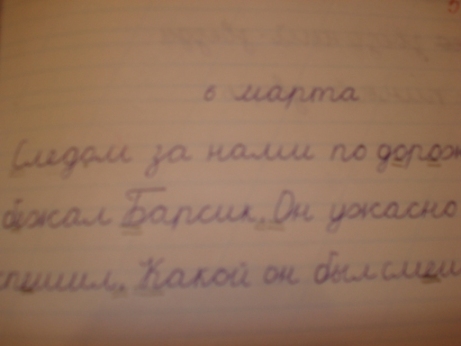 6 марта
Следом за нами по дорож
бежал Барсик. Он ужасно
спешил. Какой он был смеш